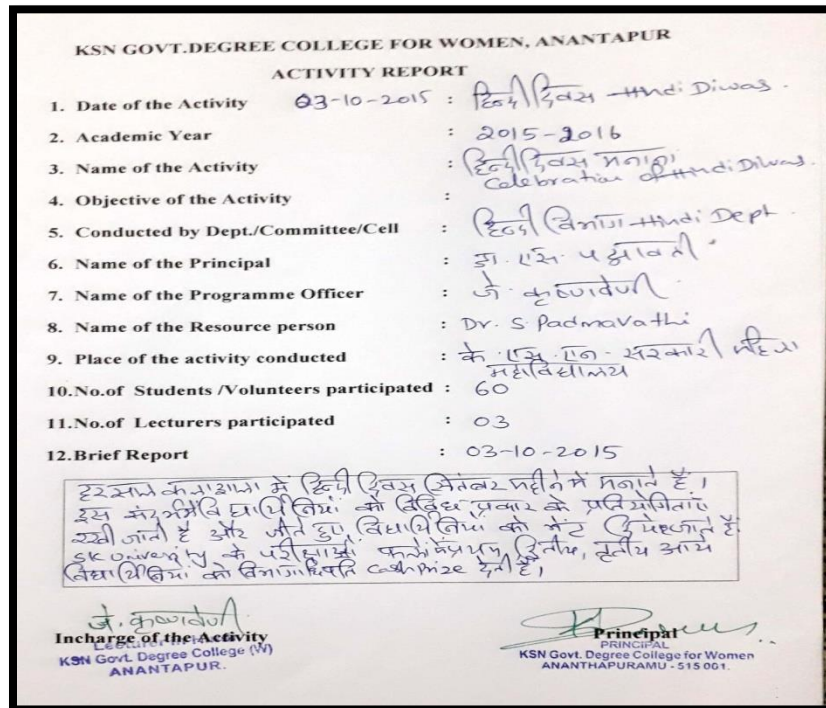 KSN GOVT.DEGREE COLLEGE FOR WOMEN, ANANTAPUR
ACTIVITY REPORT
1. Date of the Activity 03-10-2015 : हिन्दी दिवस Hindi Diwas.
2. Academic Year : 2015-2016
3. Name of the Activity : हिन्दी दिवस मनाना
Celebration of Hindi Diwas.
4. Objective of the Activity :
5. Conducted by Dept./Committee/Cell : हिन्दी विभाग Hindi Dept.
6. Name of the Principal : डा. एस. पद्मावती
7. Name of the Programme Officer : जे. कृष्णवेणी
8. Name of the Resource person : Dr. S. Padmavathi
9. Place of the activity conducted : के. एस. एन. सरकारी
महाविद्यालय
10.No.of Students /Volunteers participated : 60
11.No.of Lecturers participated : 03
12.Brief Report : 03-10-2015
हर साल कलाशाला में हिन्दी दिवस सितंबर महीने में मनाते हैं।
इस संदर्भ में विद्यार्थिनियों को विविध प्रकार के प्रतियोगिताएं
रखी जाती है और जीते हुए विद्यार्थिनियों को भेंट जाते हैं.
SK University के परीक्षाओं प्रथम, द्वितीय, तृतीय आये
विद्यार्थिनियों को विभागाधिपति Cash Prize देती है।
जे. कृष्णवेणी
Incharge of the Activity
KSN Govt. Degree College (W)
ANANTAPUR.
Principal
PRINCIPAL
KSN Govt. Degree College for Women
ANANTHAPURAMU - 515 001.